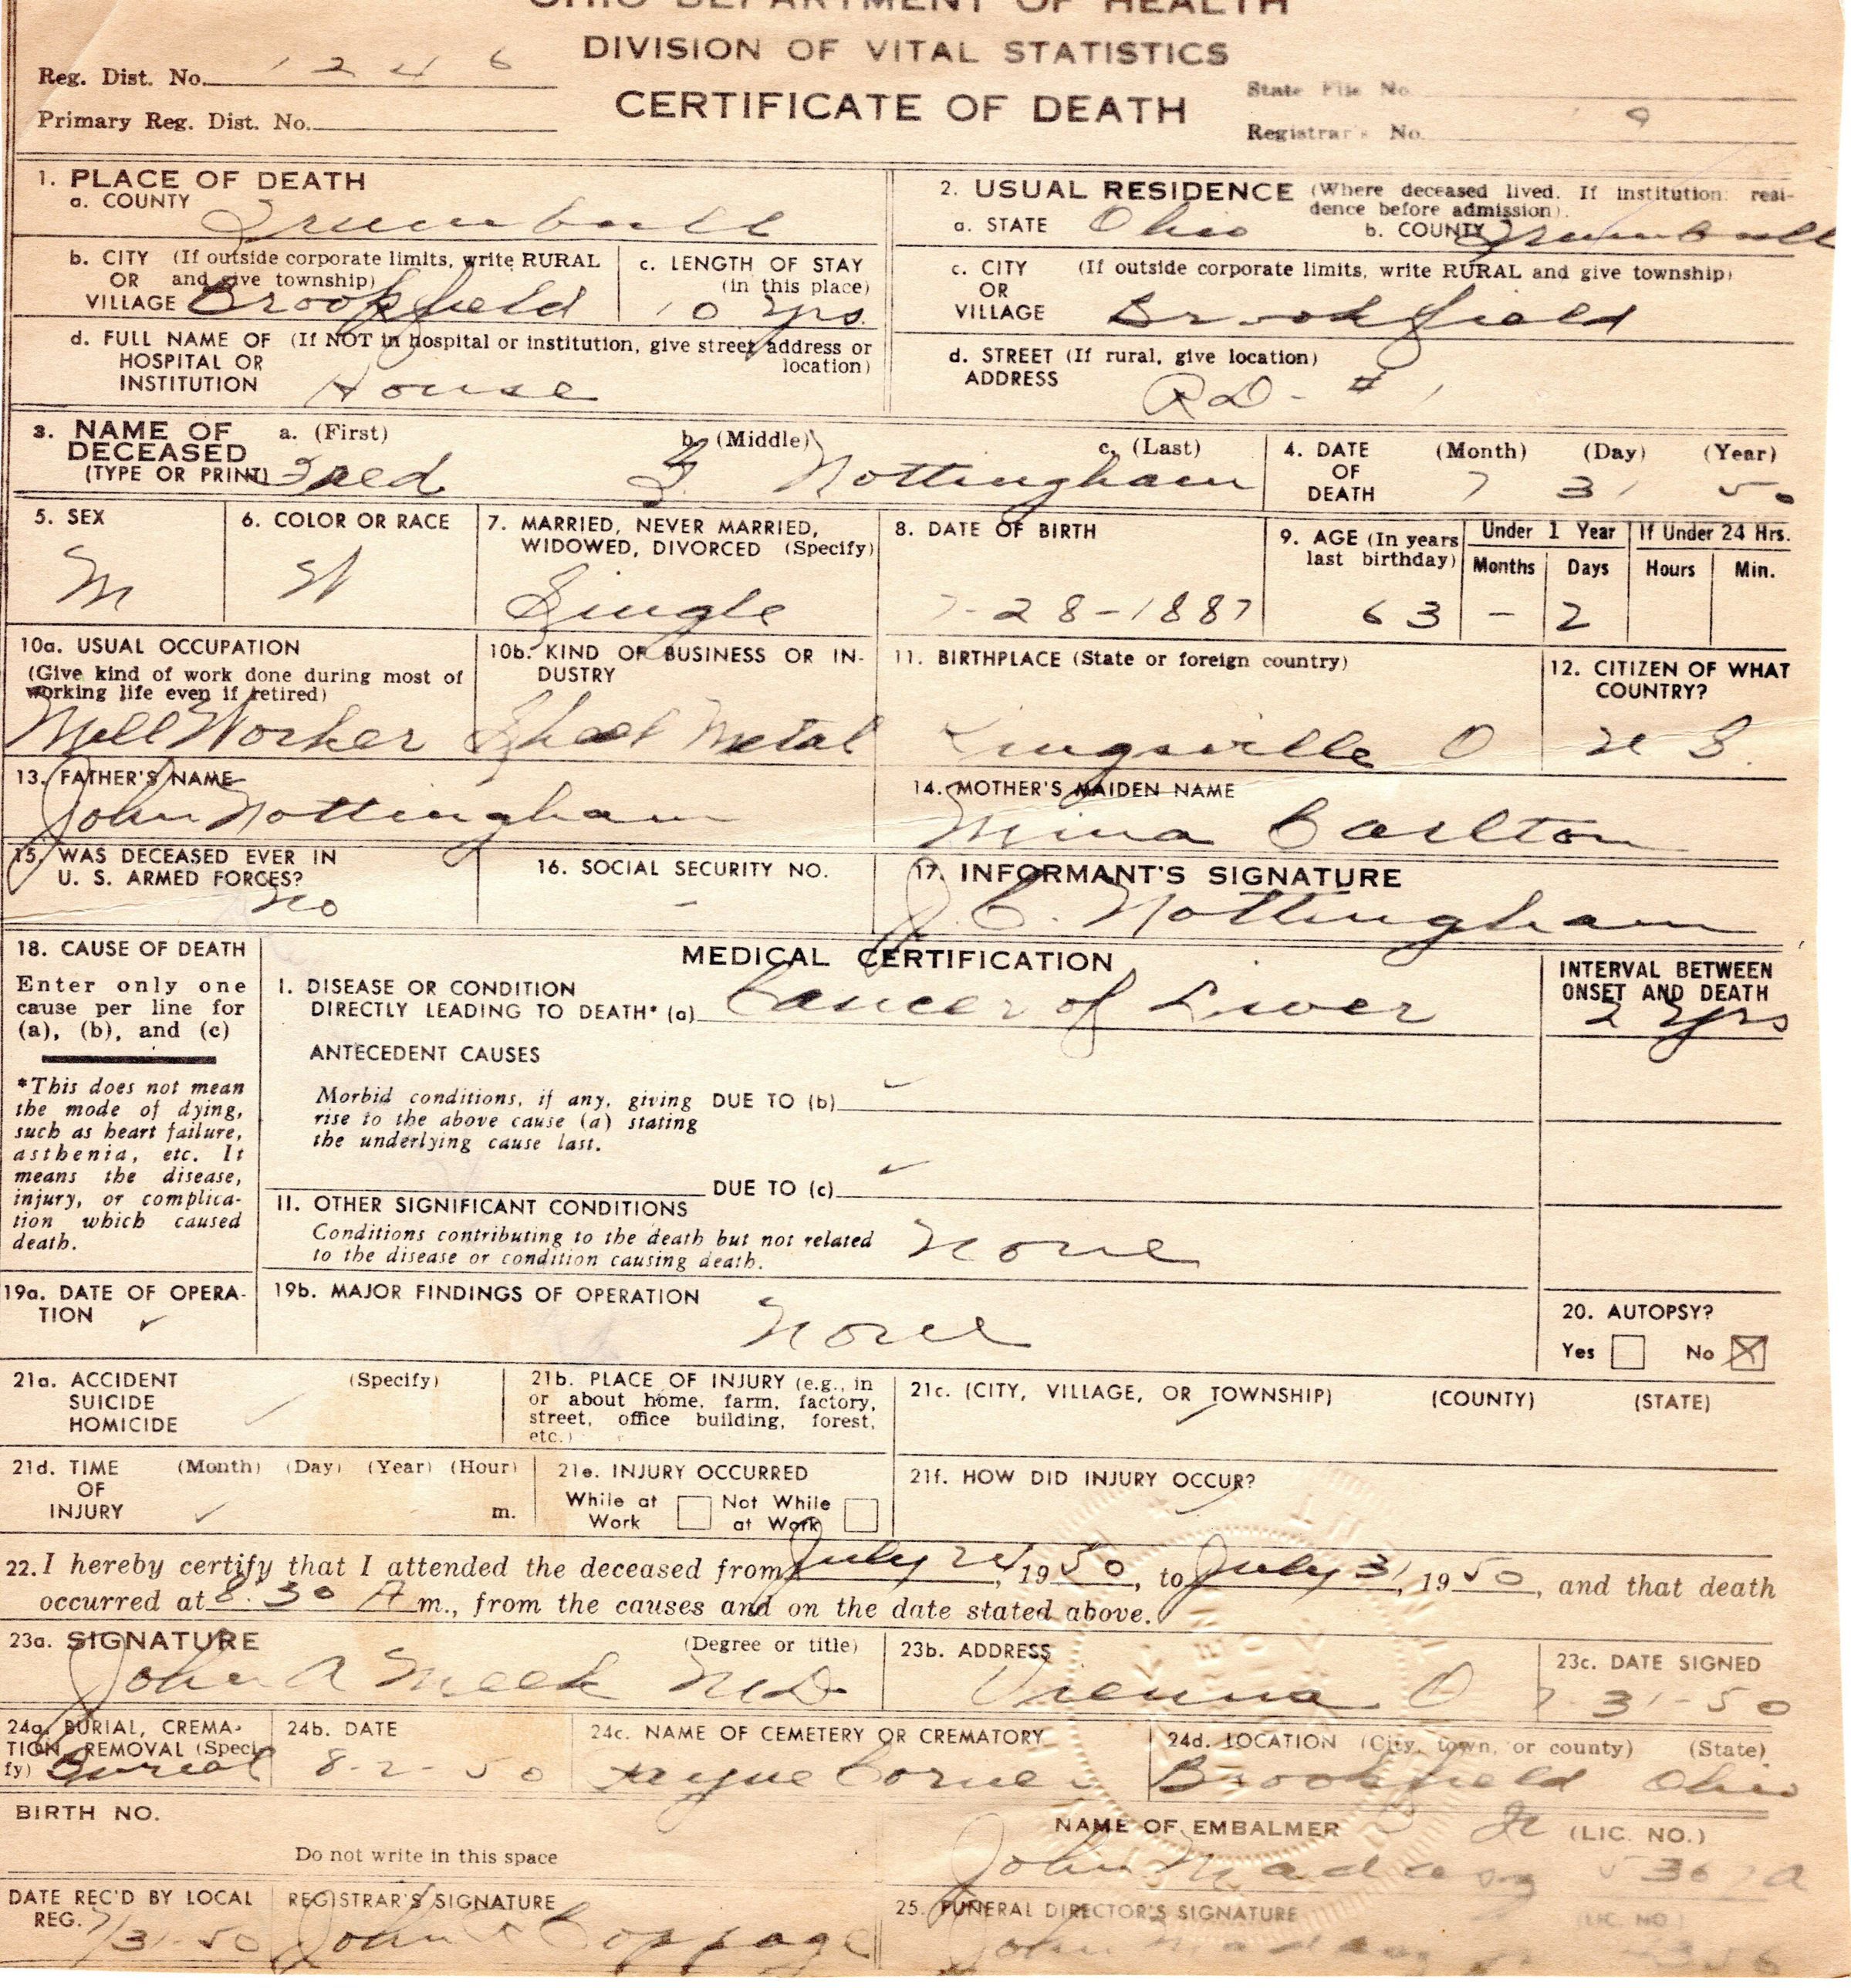 OHIO DEPARTMENT OF HEALTH
DIVISION OF VITAL STATISTICS
CERTIFICATE OF DEATH
Reg. Dist. No. 1246
Primary Reg. Dist. No.
State File No.
Registrar's No. 9
1. PLACE OF DEATH
a. COUNTY Trumbull
b. CITY (If outside corporate limits, write RURAL
OR and give township)
VILLAGE Brookfield
c. LENGTH OF STAY
(in this place)
10 yrs.
d. FULL NAME OF (If NOT in hospital or institution, give street address or
HOSPITAL OR location)
INSTITUTION House
2. USUAL RESIDENCE (Where deceased lived. If institution: resi-
dence before admission).
a. STATE Ohio b. COUNTY Trumbull
c. CITY (If outside corporate limits, write RURAL and give township)
OR
VILLAGE Brookfield
d. STREET (If rural, give location)
ADDRESS RD - # 1
3. NAME OF a. (First) b. (Middle) c. (Last)
DECEASED
(TYPE OR PRINT) Fred Nottingham
4. DATE (Month) (Day) (Year)
OF
DEATH 7 31 50
5. SEX
M
6. COLOR OR RACE
W
7. MARRIED, NEVER MARRIED,
WIDOWED, DIVORCED (Specify)
Single
8. DATE OF BIRTH
7-28-1887
9. AGE (In years
last birthday)
63
Under 1 Year
Months Days
- 2
If Under 24 Hrs.
Hours Min.
10a. USUAL OCCUPATION
(Give kind of work done during most of
working life even if retired)
Mill Worker
10b. KIND OF BUSINESS OR IN-
DUSTRY
Sheet Metal
11. BIRTHPLACE (State or foreign country)
Kingsville O
12. CITIZEN OF WHAT
COUNTRY?
U S.
13. FATHER'S NAME
John Nottingham
14. MOTHER'S MAIDEN NAME
Mina Carlton
15. WAS DECEASED EVER IN
U. S. ARMED FORCES?
No
16. SOCIAL SECURITY NO.
-
17. INFORMANT'S SIGNATURE
J. C. Nottingham
18. CAUSE OF DEATH
Enter only one
cause per line for
(a), (b), and (c)
*This does not mean
the mode of dying,
such as heart failure,
asthenia, etc. It
means the disease,
injury, or complica-
tion which caused
death.
MEDICAL CERTIFICATION
I. DISEASE OR CONDITION
DIRECTLY LEADING TO DEATH* (a) Cancer of Liver
INTERVAL BETWEEN
ONSET AND DEATH
2 yrs
ANTECEDENT CAUSES
Morbid conditions, if any, giving DUE TO (b)
rise to the above cause (a) stating
the underlying cause last.
DUE TO (c)
II. OTHER SIGNIFICANT CONDITIONS
Conditions contributing to the death but not related
to the disease or condition causing death.
None
19a. DATE OF OPERA-
TION
19b. MAJOR FINDINGS OF OPERATION
None
20. AUTOPSY?
Yes No
21a. ACCIDENT (Specify)
SUICIDE
HOMICIDE
21b. PLACE OF INJURY (e.g., in
or about home, farm, factory,
street, office building, forest,
etc.)
21c. (CITY, VILLAGE, OR TOWNSHIP) (COUNTY) (STATE)
21d. TIME (Month) (Day) (Year) (Hour)
OF
INJURY m.
21e. INJURY OCCURRED
While at Not While
Work at Work
21f. HOW DID INJURY OCCUR?
22. I hereby certify that I attended the deceased from July 24, 1950, to July 31, 1950, and that death
occurred at 8:30 A m., from the causes and on the date stated above.
23a. SIGNATURE (Degree or title)
John A Meek MD
23b. ADDRESS
Vienna O
23c. DATE SIGNED
7-31-50
24a. BURIAL, CREMA-
TION, REMOVAL (Speci-
fy) Burial
24b. DATE
8-2-50
24c. NAME OF CEMETERY OR CREMATORY
Payne Corner
24d. LOCATION (City, town, or county) (State)
Brookfield Ohio
BIRTH NO.
Do not write in this space
NAME OF EMBALMER (LIC. NO.)
John Jr
DATE REC'D BY LOCAL
REG. 7/31-50
REGISTRAR'S SIGNATURE
John Coppage
25. FUNERAL DIRECTOR'S SIGNATURE (LIC. NO.)
John